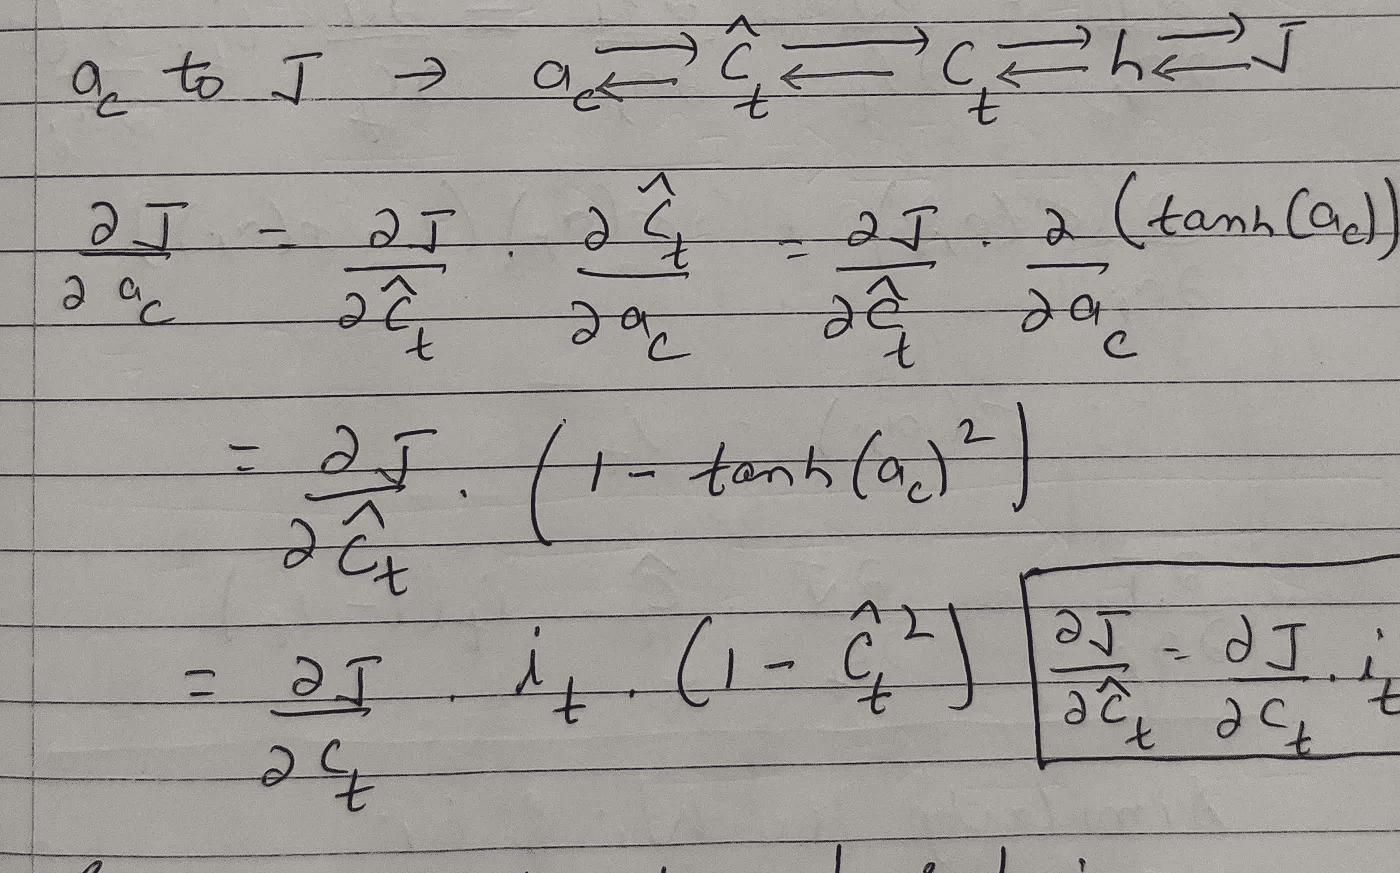 a_c to J → a_c ⇄ Ĉ_t ⇄ C_t ⇄ h ⇄ J
∂J/∂a_c = ∂J/∂Ĉ_t . ∂Ĉ_t/∂a_c = ∂J/∂Ĉ_t . ∂/∂a_c (tanh(a_c))
= ∂J/∂Ĉ_t . (1 - tanh(a_c)²)
= ∂J/∂C_t . i_t . (1 - Ĉ_t²) ∂J/∂Ĉ_t = ∂J/∂C_t . i_t